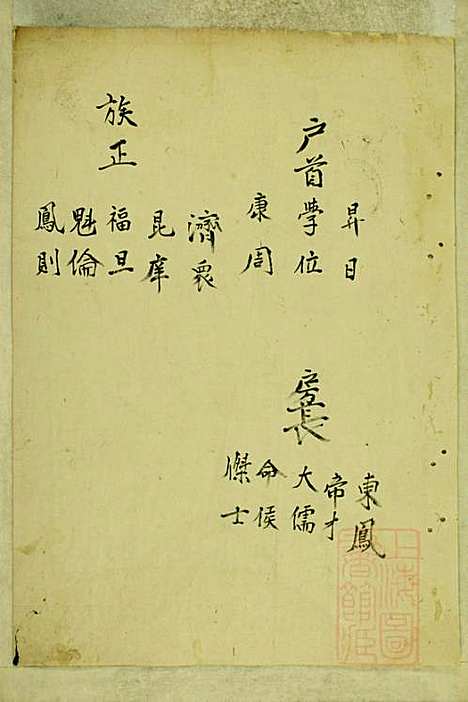 昇日
户首學位
康周
濟眾
昆庠
族正福旦
魁倫
鳳則
東鳳
帝才
房長大儒
命侯
傑士
上海圖